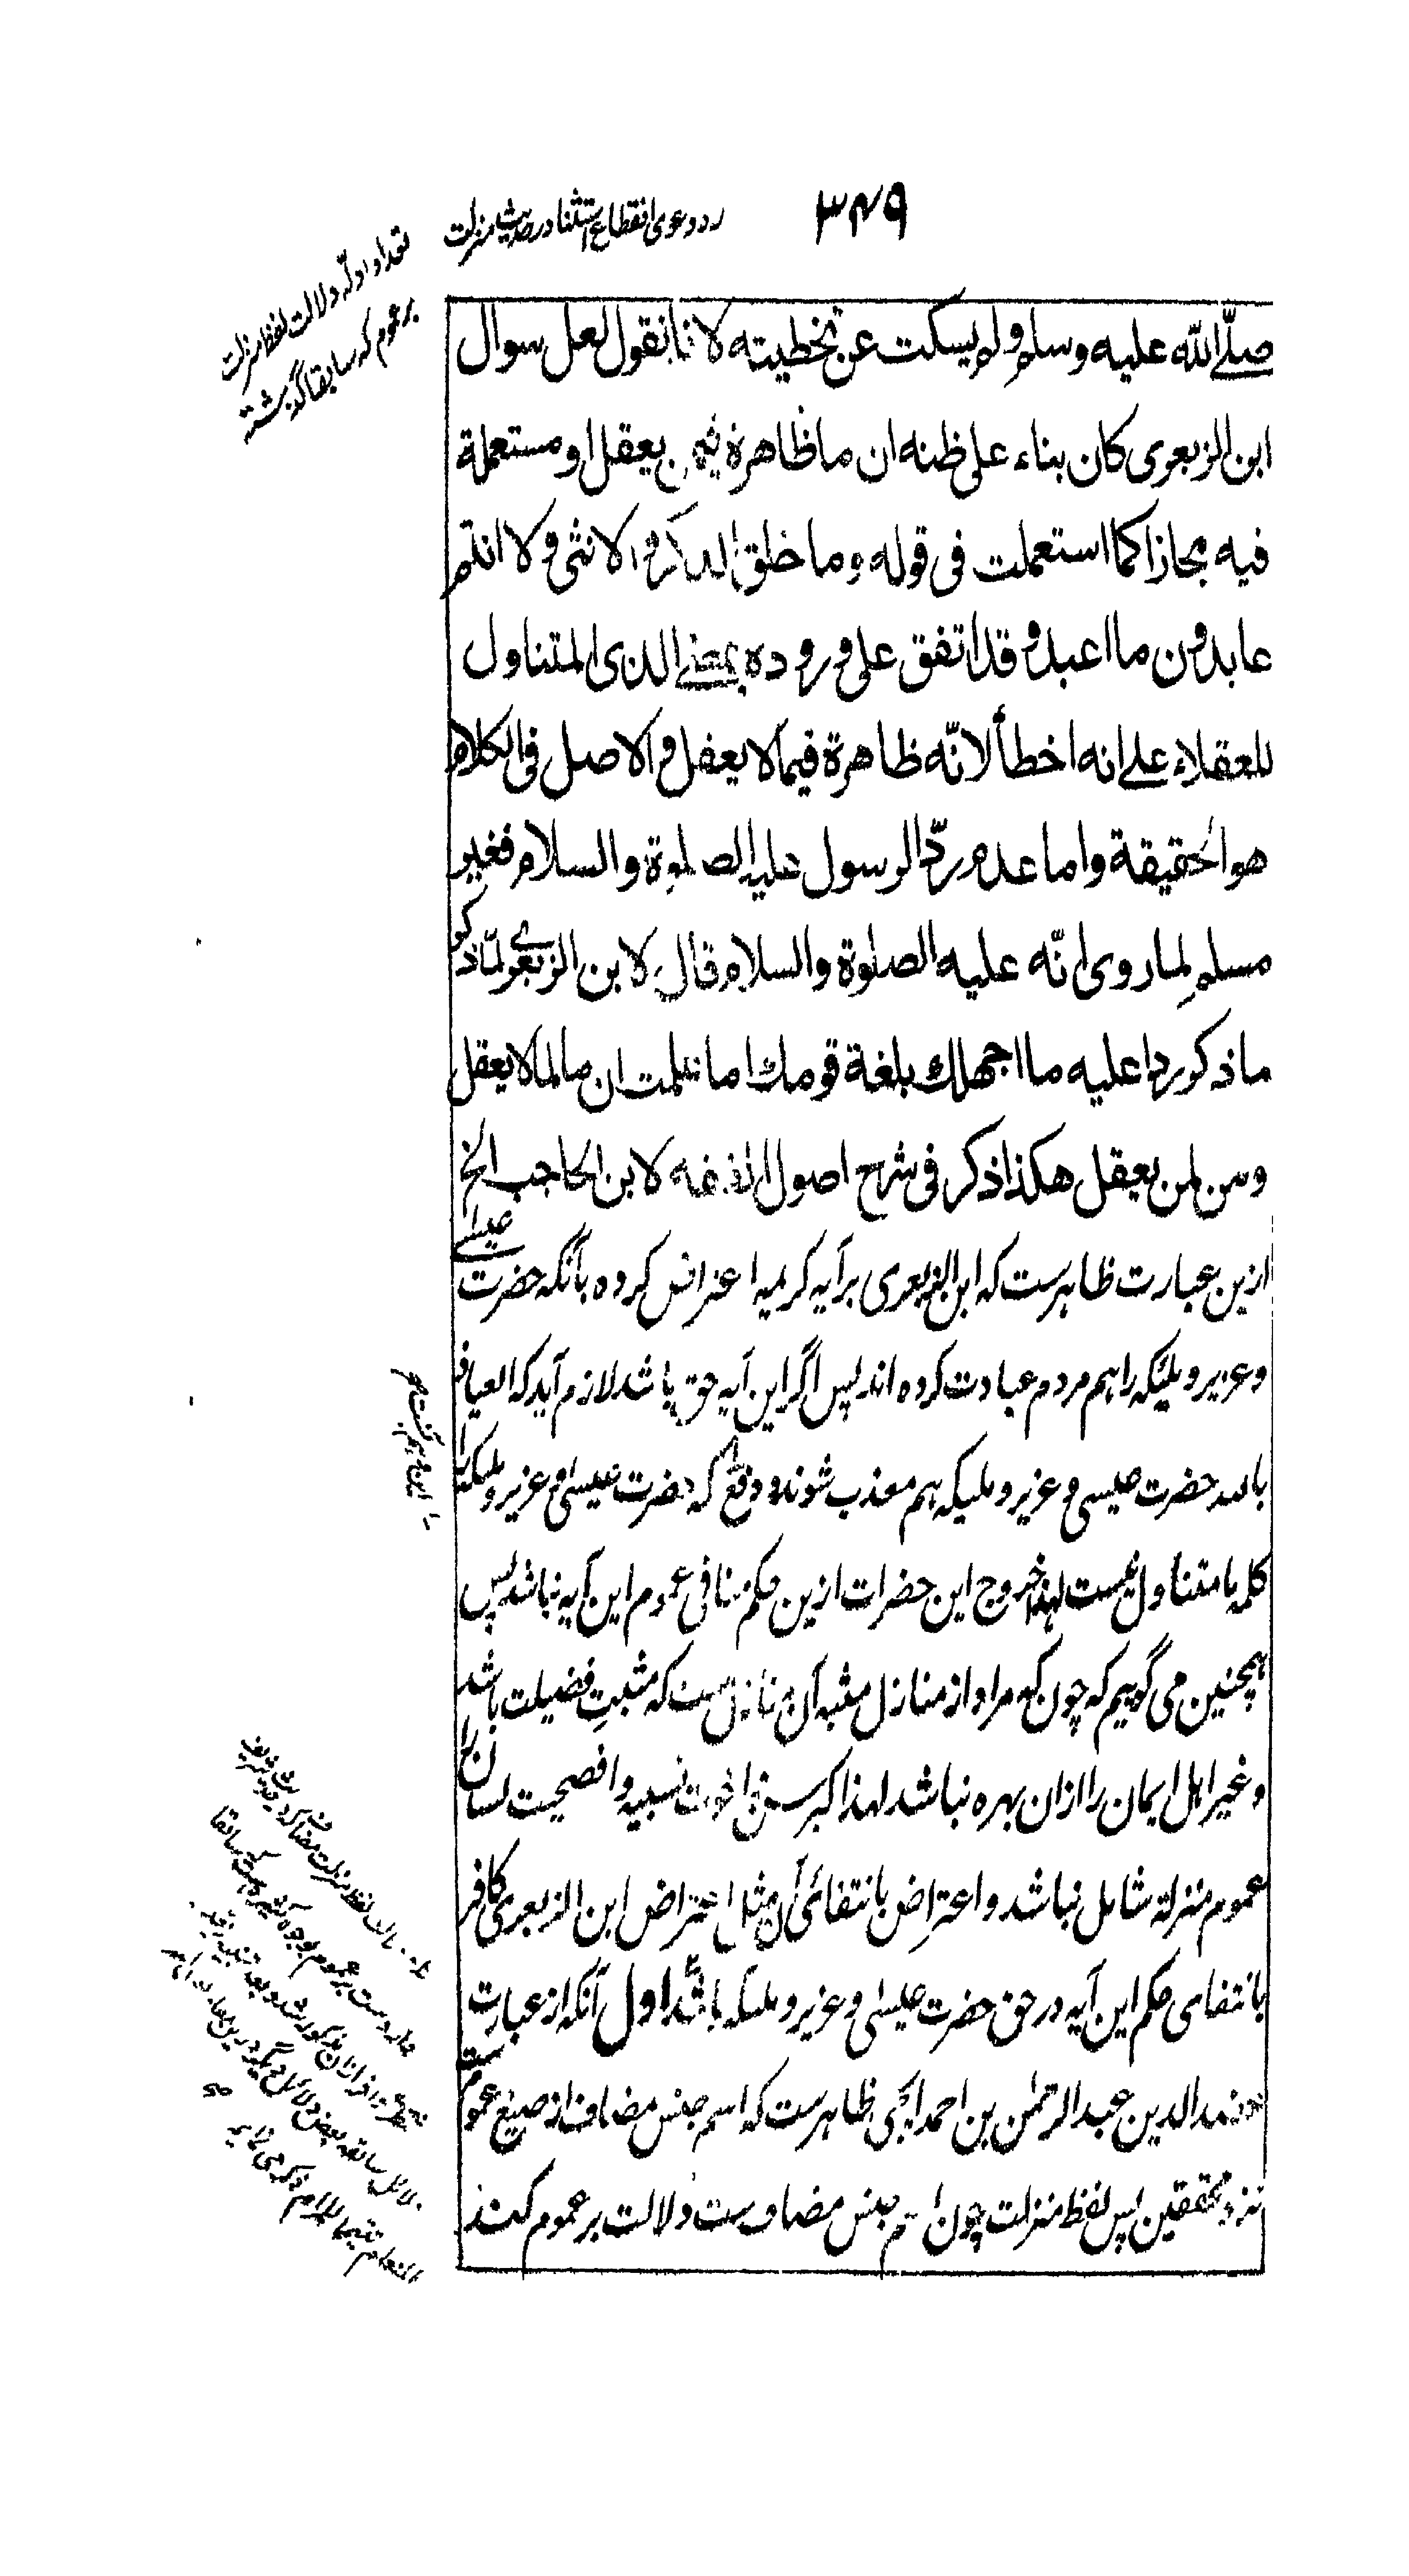 ۳۴۹
رد دعوی انقطاع استثنا در حدیث منزلت
تعداد ادلّه دلالت لفظ منزلت
بر عموم که سابقا گذشته
صلّى الله عليه وسلم ولم يسكت عن تخطيته لانا نقول لعل سوال
ابن الزبعرى كان بناء على ظنه ان ما ظاهرة فيمن يعقل او مستعملة
فيه مجازا كما استعملت فى قوله وما خلق الذكر والانثى ولا انتم
عابدون ما اعبد وقد اتفق على وروده بمعنى الذى المتناول
للعقلاء على انه اخطأ لانّه ظاهرة فيما لا يعقل والاصل فى الكلام
هو الحقيقة واما عدم ردّ الرسول عليه الصلوة والسلام فغير
مسلم لما روى انّه عليه الصلوة والسلام قال لابن الزبعرى لمّا ذكر
ما ذكر ردا عليه ما اجهلك بلغة قومك اما علمت ان ما لما لا يعقل
ومن لمن يعقل هكذا ذكر فى شرح اصول الفقه لابن الحاجب الخ
ازین عبارت ظاهرست که ابن الزبعری بر آیه کریمه اعتراض کرده بآنکه حضرت عیسی
و عزیر و ملئکه را هم مردم عبادت کرده اند پس اگر این آیه حق باشد لازم آید که العیاذ
بالله حضرت عیسی و عزیر و ملیکه هم معذب شوند و دفع که حضرت عیسی و عزیر و ملیکه را
کلمه ما متناول نیست لهذا خروج این حضرات ازین حکم منافی عموم این آیه نباشد پس
همچنین می گوییم که چون که مراد از منازل مثبه آن منازل ست که مثبتِ فضیلت باشد
و غیر اهل ایمان را ازان بهره نباشد لهذا کبر سن و اخوت نسبیه و افصحیت لسان را
عموم منزلة شامل نباشد و اعتراض بانتفائی آن مثل اعتراض ابن الزبعری کافر
بانتفای حکم این آیه در حق حضرت عیسی و عزیر و ملیکه باشد اول آنکه از عبارت
عضد الدین عبد الرحمن بن احمد ایجی ظاهرست که اسم جنس مضاف از صیغ عموم ست
نزد محققین پس لفظ منزلت چون اسم جنس مضاف ست دلالت بر عموم کند